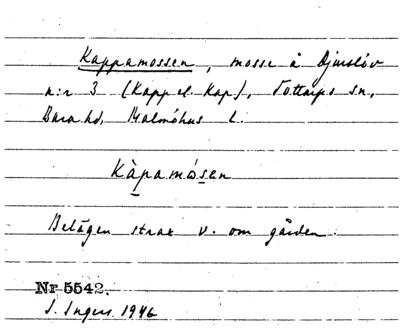 Kappamossen, mosse å Djurslöv
n:r 3 (Kapp el. Kap), Tottarps sn,
Bara hd, Malmöhus l.
Kàpamósen
Belägen strax v. om gården.
Nr 5542.
S. Ingers. 1946